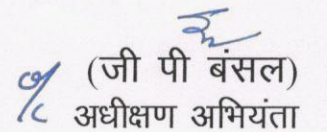 (जी पी बंसल)
अधीक्षण अभियंता